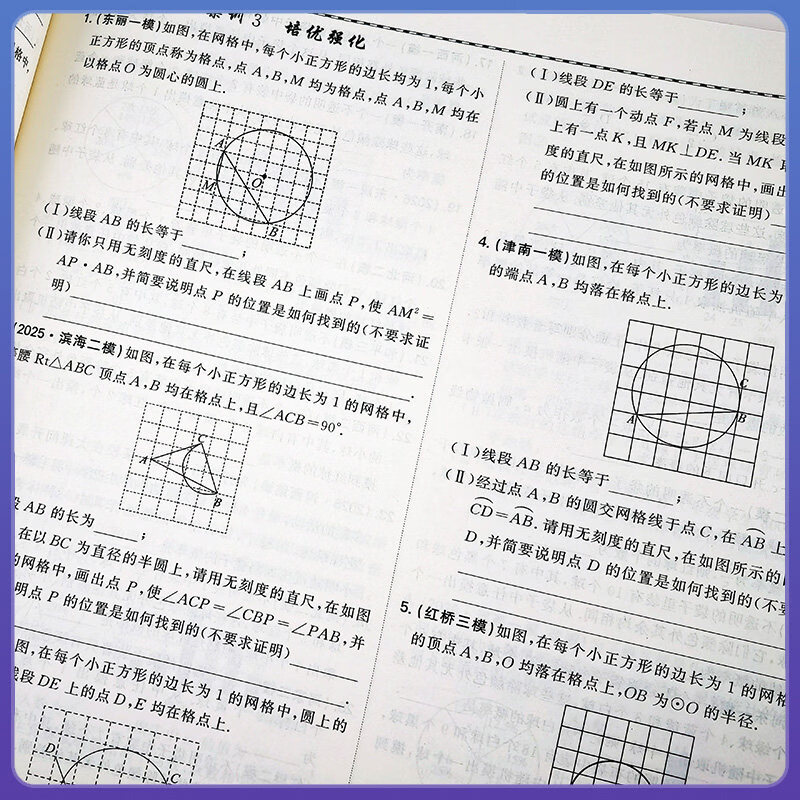 训3 培优强化
1.(东丽一模)如图,在网格中,每个小正方形的边长均为1,每个小
正方形的顶点称为格点,点A,B,M均为格点,点A,B,M均在
以格点O为圆心的圆上.
A
M
O
B
(Ⅰ)线段AB的长等于______;
(Ⅱ)请你只用无刻度的直尺,在线段AB上画点P,使AM²=
AP·AB,并简要说明点P的位置是如何找到的(不要求证
明)
(2025·滨海二模)如图,在每个小正方形的边长为1的网格中,
腰Rt△ABC顶点A,B均在格点上,且∠ACB=90°.
A
C
B
AB的长为______;
在以BC为直径的半圆上,请用无刻度的直尺,在如图
的网格中,画出点P,使∠ACP=∠CBP=∠PAB,并
明点P的位置是如何找到的(不要求证明)
图,在每个小正方形的边长为1的网格中,圆上的
线段DE上的点D,E均在格点上.
D
C
(Ⅰ)线段DE的长等于______
(Ⅱ)圆上有一个动点F,若点M为线段
上有一点K,且MK⊥DE.当MK
度的直尺,在如图所示的网格中,画出
的位置是如何找到的(不要求证明)
4.(津南一模)如图,在每个小正方形的边长为
的端点A,B均落在格点上.
C
A
B
(Ⅰ)线段AB的长等于______;
(Ⅱ)经过点A,B的圆交网格线于点C,在AB上
CD=AB.请用无刻度的直尺,在如图所示的
D,并简要说明点D的位置是如何找到的(不要
5.(红桥三模)如图,在每个小正方形的边长为1的网格
的顶点A,B,O均落在格点上,OB为⊙O的半径.